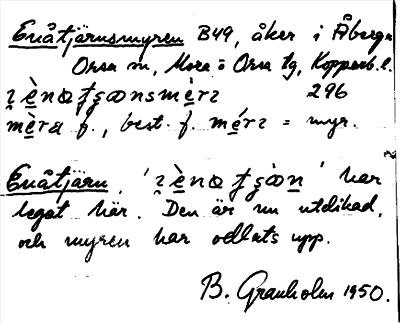 Enåtjärnsmyren B49, åker i Åberga
Orsa sn, Mora o Orsa tg, Kopparb. l.
296
f., best. f. = myr.
Enåtjärn, har
legat här. Den är nu utdikad,
och myren har odlats upp.
B. Granholm 1950.